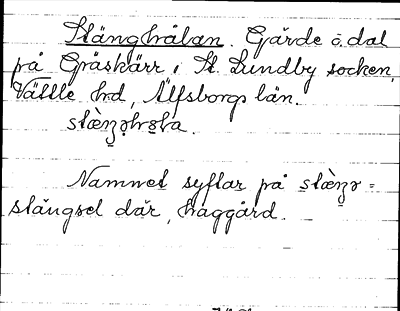 Stänghålan. Gärde o. dal
på Gråskärr i St. Lundby socken,
Vättle hd, Älfsborgs län.
Namnet syftar på
stängsel där, haggård.